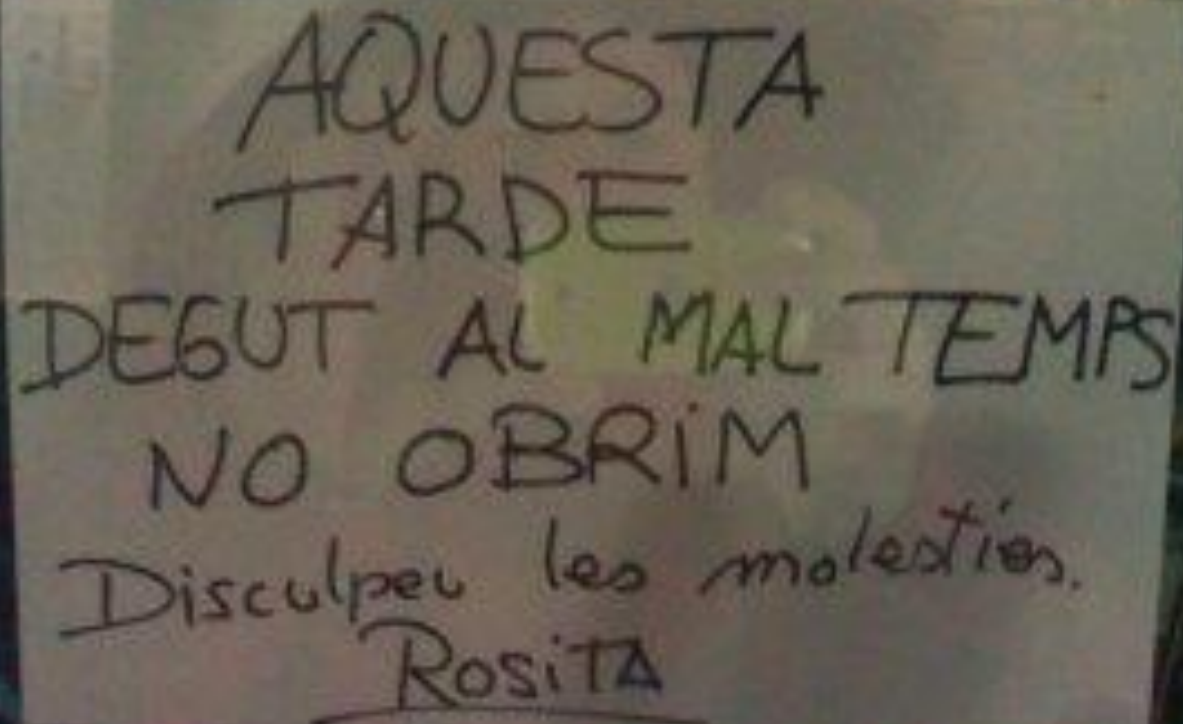 AQUESTA
TARDE
DEGUT AL MAL TEMPS
NO OBRIM
Disculpeu les molesties.
ROSITA